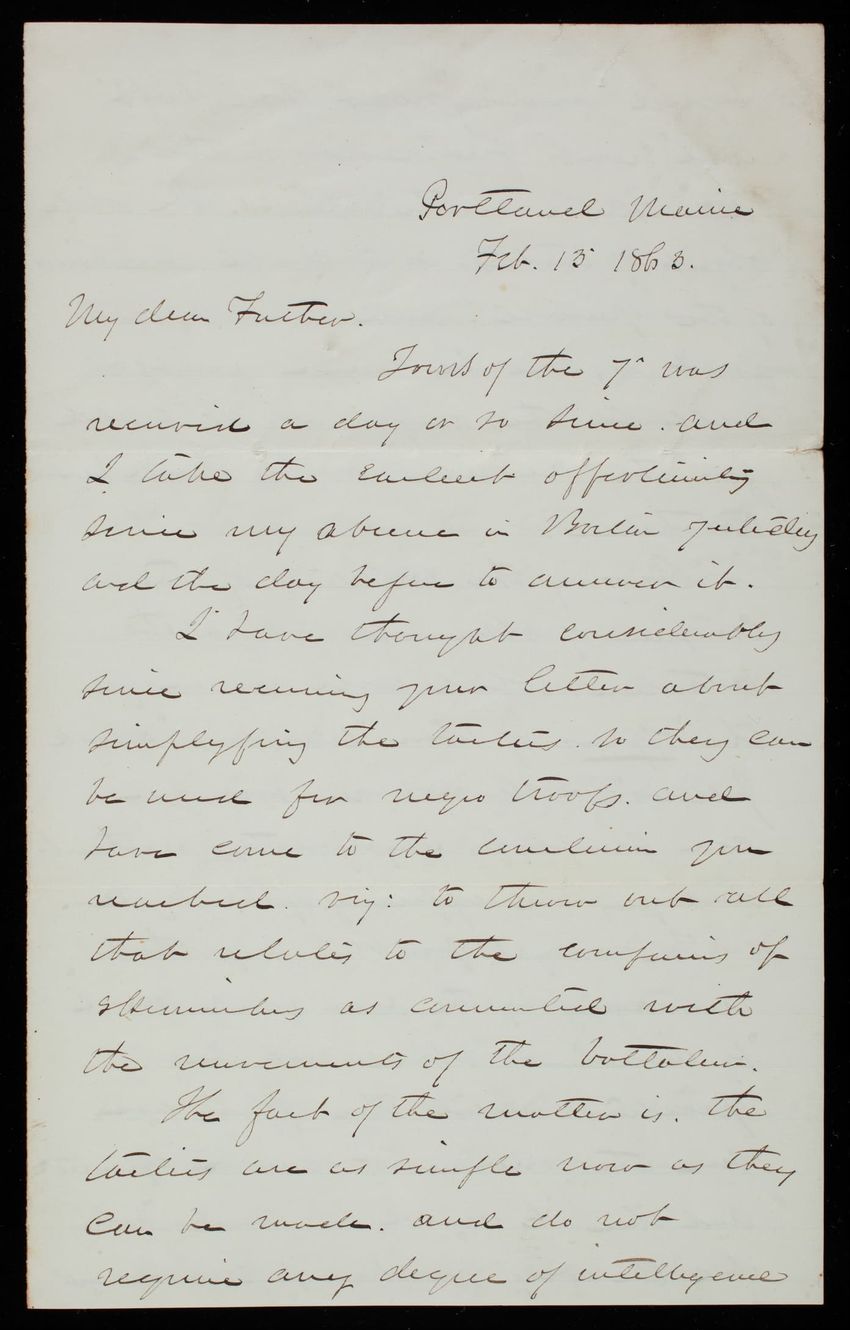 Portland Maine
Feb. 15 1863.
My dear Father.
Yours of the 7" was
received a day or so since. and
I take the earliest opportunity
since my absence in Boston yesterday
and the day before to answer it.
I have thought considerably
since receiving your letter about
simplyfying the tactics. so they can
be used for negro troops. and
have come to the conclusion you
reached. viz: to throw out all
that relates to the companies of
skirmishers as connected with
the movements of the battalion.
The fact of the matter is. the
tactics are as simple now as they
can be made. and do not
require any degree of intelligence